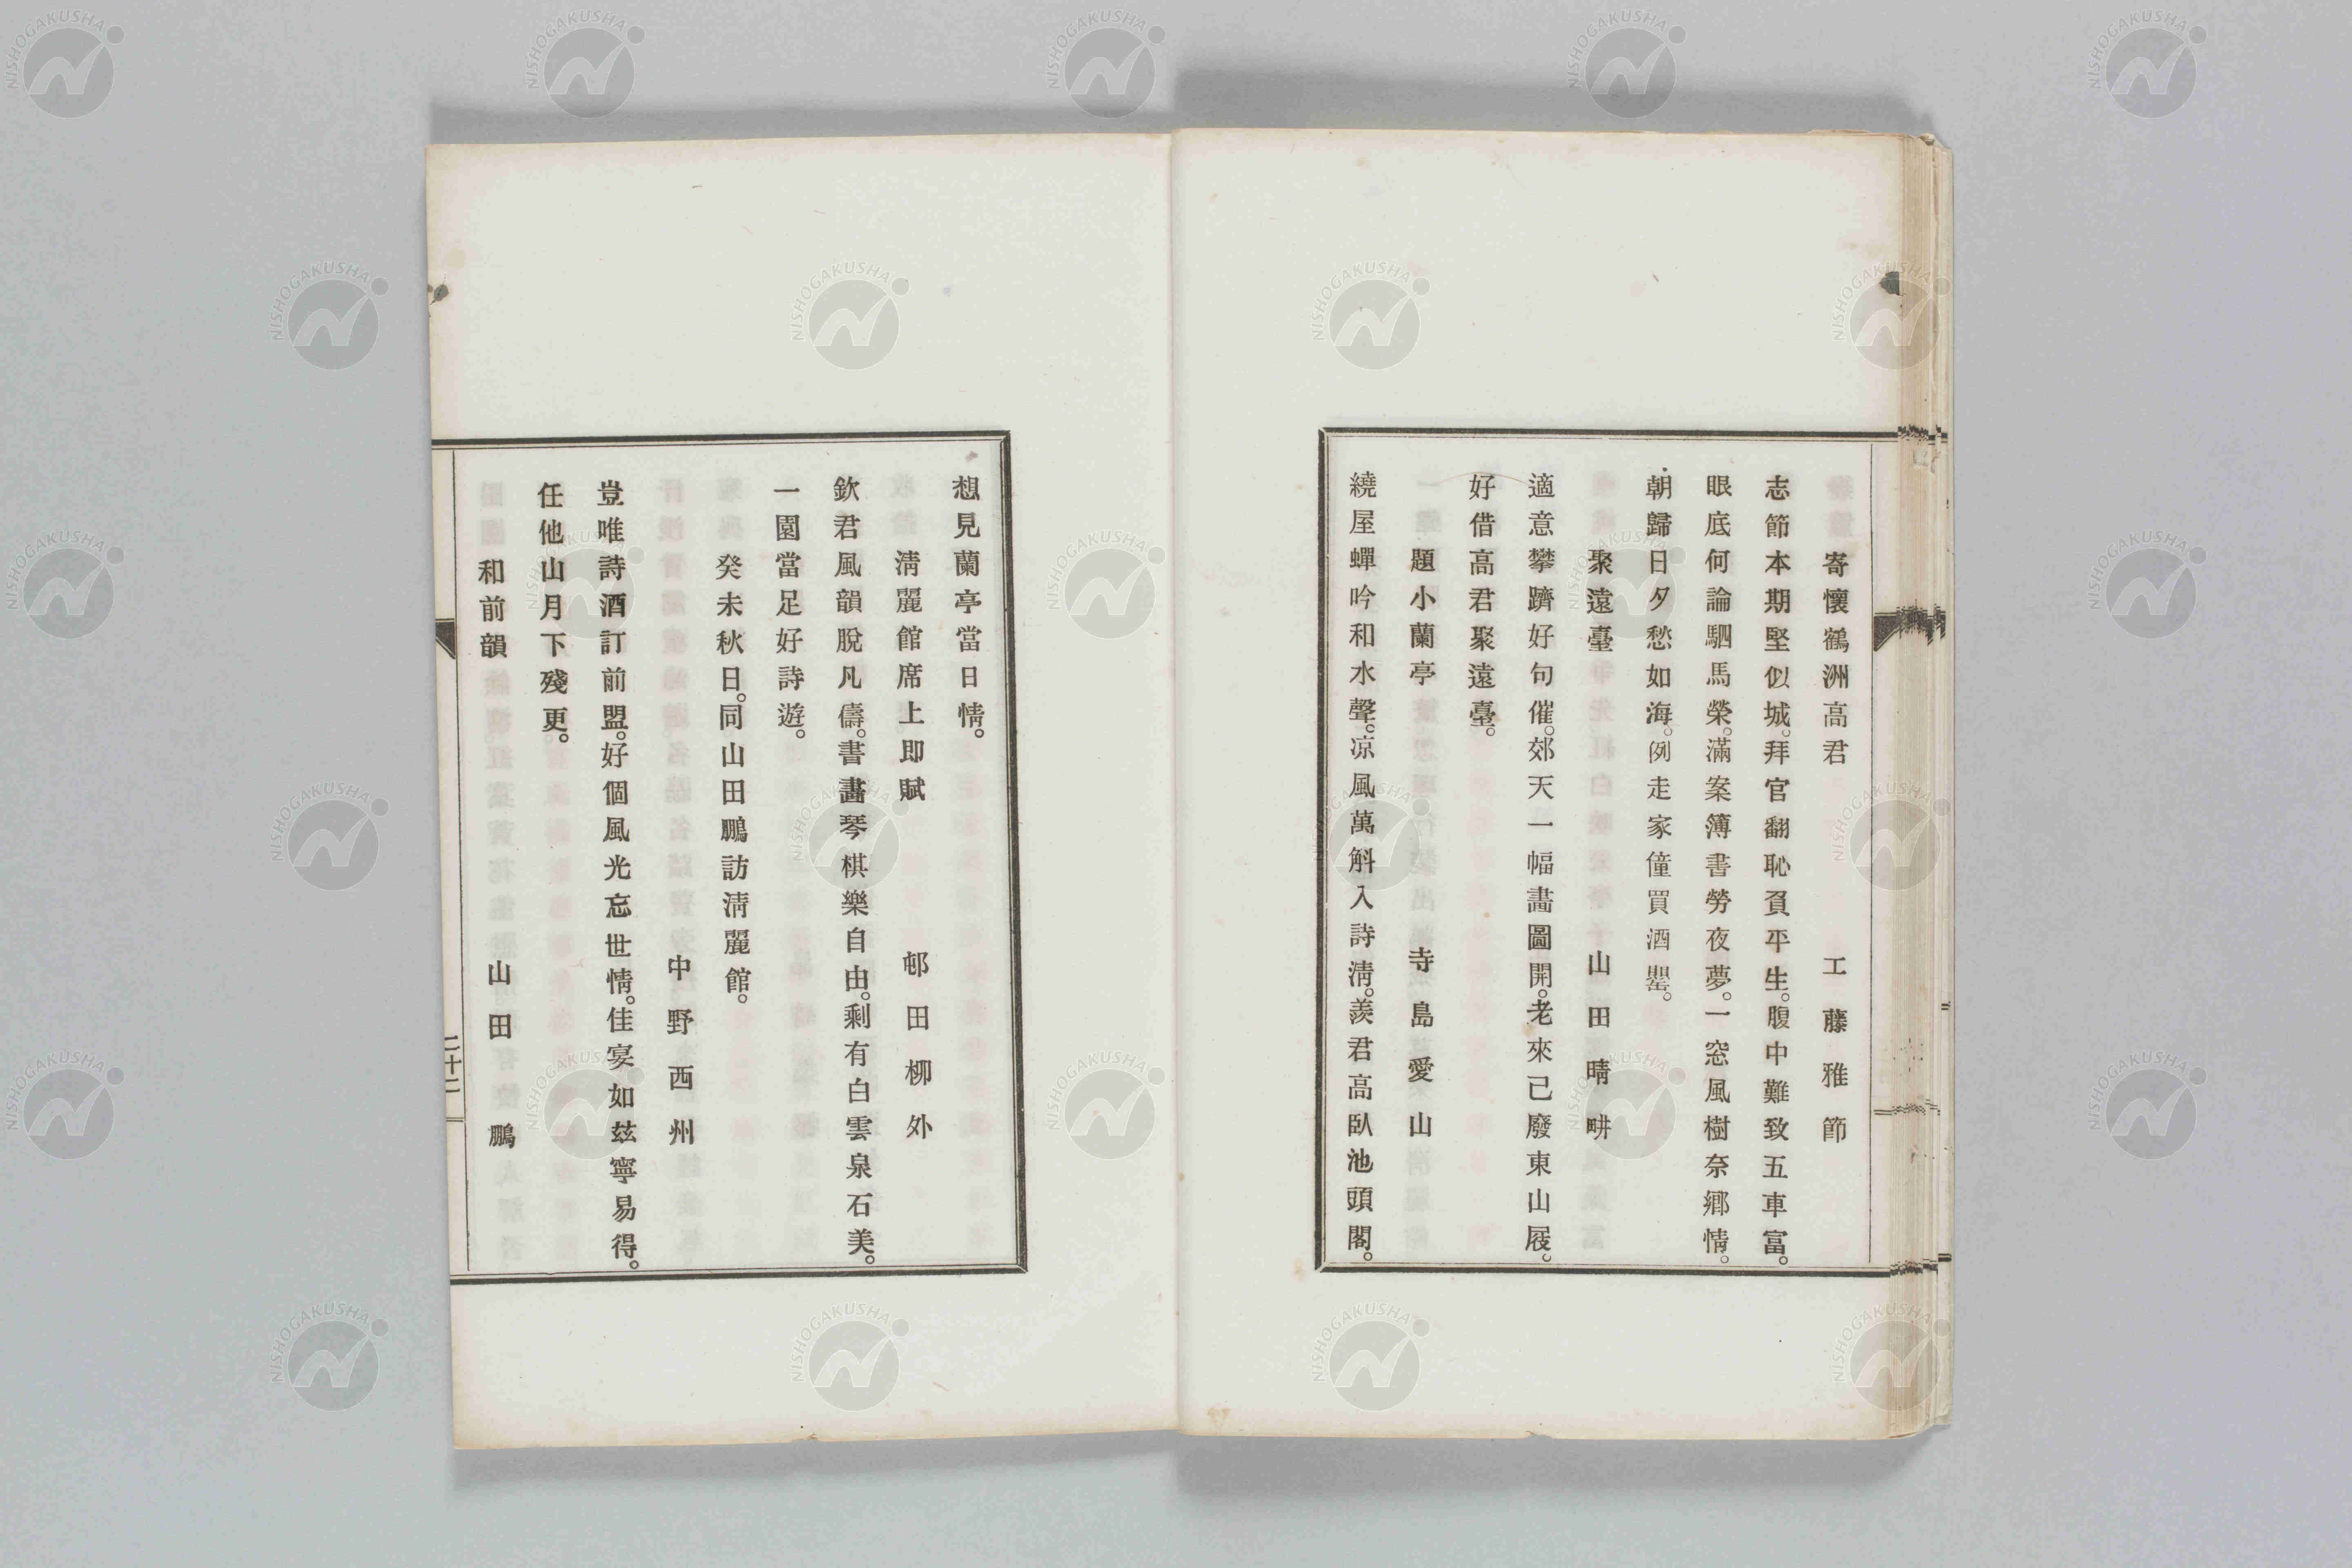 寄懷鶴洲高君　工藤雅節
志節本期堅似城。拜官翻恥負平生。腹中難致五車富。
眼底何論駟馬榮。滿案簿書勞夜夢。一窓風樹奈鄉情。
朝歸日夕愁如海。例走家僮買酒罌。
聚遠臺　山田晴畊
適意攀躋好句催。郊天一幅畵圖開。老來已廢東山屐。
好借高君聚遠臺。
題小蘭亭　寺島愛山
繞屋蟬吟和水聲。凉風萬斛入詩淸。羨君高臥池頭閣。
想見蘭亭當日情。
淸麗館席上卽賦　邨田柳外
欽君風韻脫凡儔。書畵琴棋樂自由。剩有白雲泉石美。
一園當足好詩遊。
癸未秋日。同山田鵬訪淸麗館。
中野西州
豈唯詩酒訂前盟。好個風光忘世情。佳宴如玆寧易得。
任他山月下殘更。
和前韻　山田鵬
二十二
NISHOGAKUSHA